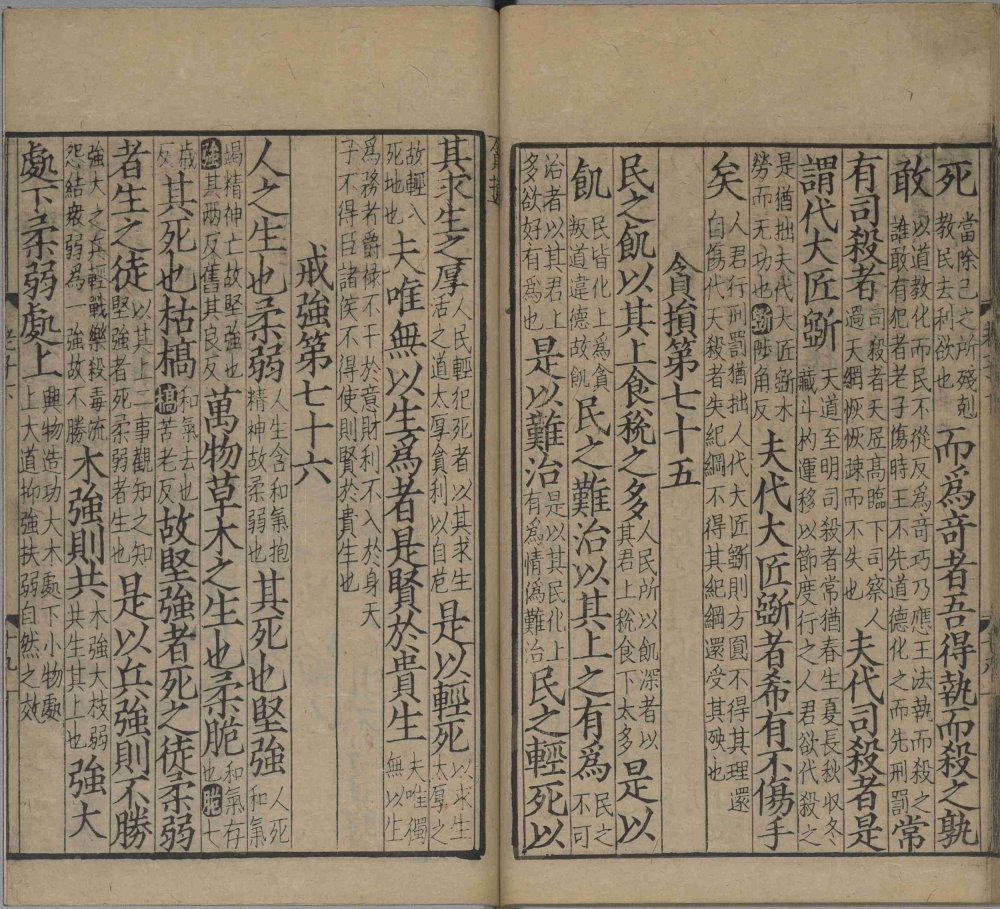 死當除己之所殘剋教民去利欲也而爲竒者吾得執而殺之孰
敢以道教化而民不從反爲竒巧乃應王法執而殺之誰敢有犯者老子傷時王不先道德化之而先刑罰常
有司殺者司殺者天居髙臨下司察人過天網恢恢疎而不失也夫代司殺者是
謂代大匠斵天道至明司殺者常猶春生夏長秋収冬藏斗杓運移以節度行之人君欲代殺之
是猶拙夫代大匠斵木勞而无功也斵陟角反夫代大匠斵者希有不傷手
矣人君行刑罰猶拙人代大匠斵則方圓不得其理還自傷代天殺者失紀綱不得其紀綱還受其殃也
貪損第七十五
民之飢以其上食稅之多人民所以飢深者以其君上稅食下太多是以
飢民皆化上爲貪叛道違德故飢民之難治以其上之有爲民之不可
治者以其君上多欲好有爲也是以難治是以其民化上有爲情僞難治民之輕死以
其求生之厚人民輕犯死者以其求生活之道太厚貪利以自危是以輕死以求生太厚之
故輕入死地也夫唯無以生爲者是賢於貴生夫唯獨無以生
爲務者爵禄不干於意財利不入於身天子不得臣諸侯不得使則賢於貴生也
戒強第七十六
人之生也柔弱人生含和氣抱精神故柔弱也其死也堅強人死和氣
竭精神亡故堅強也強其兩反舊其良反萬物草木之生也柔脆和氣存也脆七
歳反其死也枯槁和氣去也槁苦老反故堅強者死之徒柔弱
者生之徒以其上二事觀知之知堅強者死柔弱者生也是以兵強則不勝
強大之兵輕戰樂殺毒流怨結衆弱爲一強故不勝木強則共木強大枝弱共生其上也強大
處下柔弱處上興物造功大木處下小物處上大道抑強扶弱自然之效